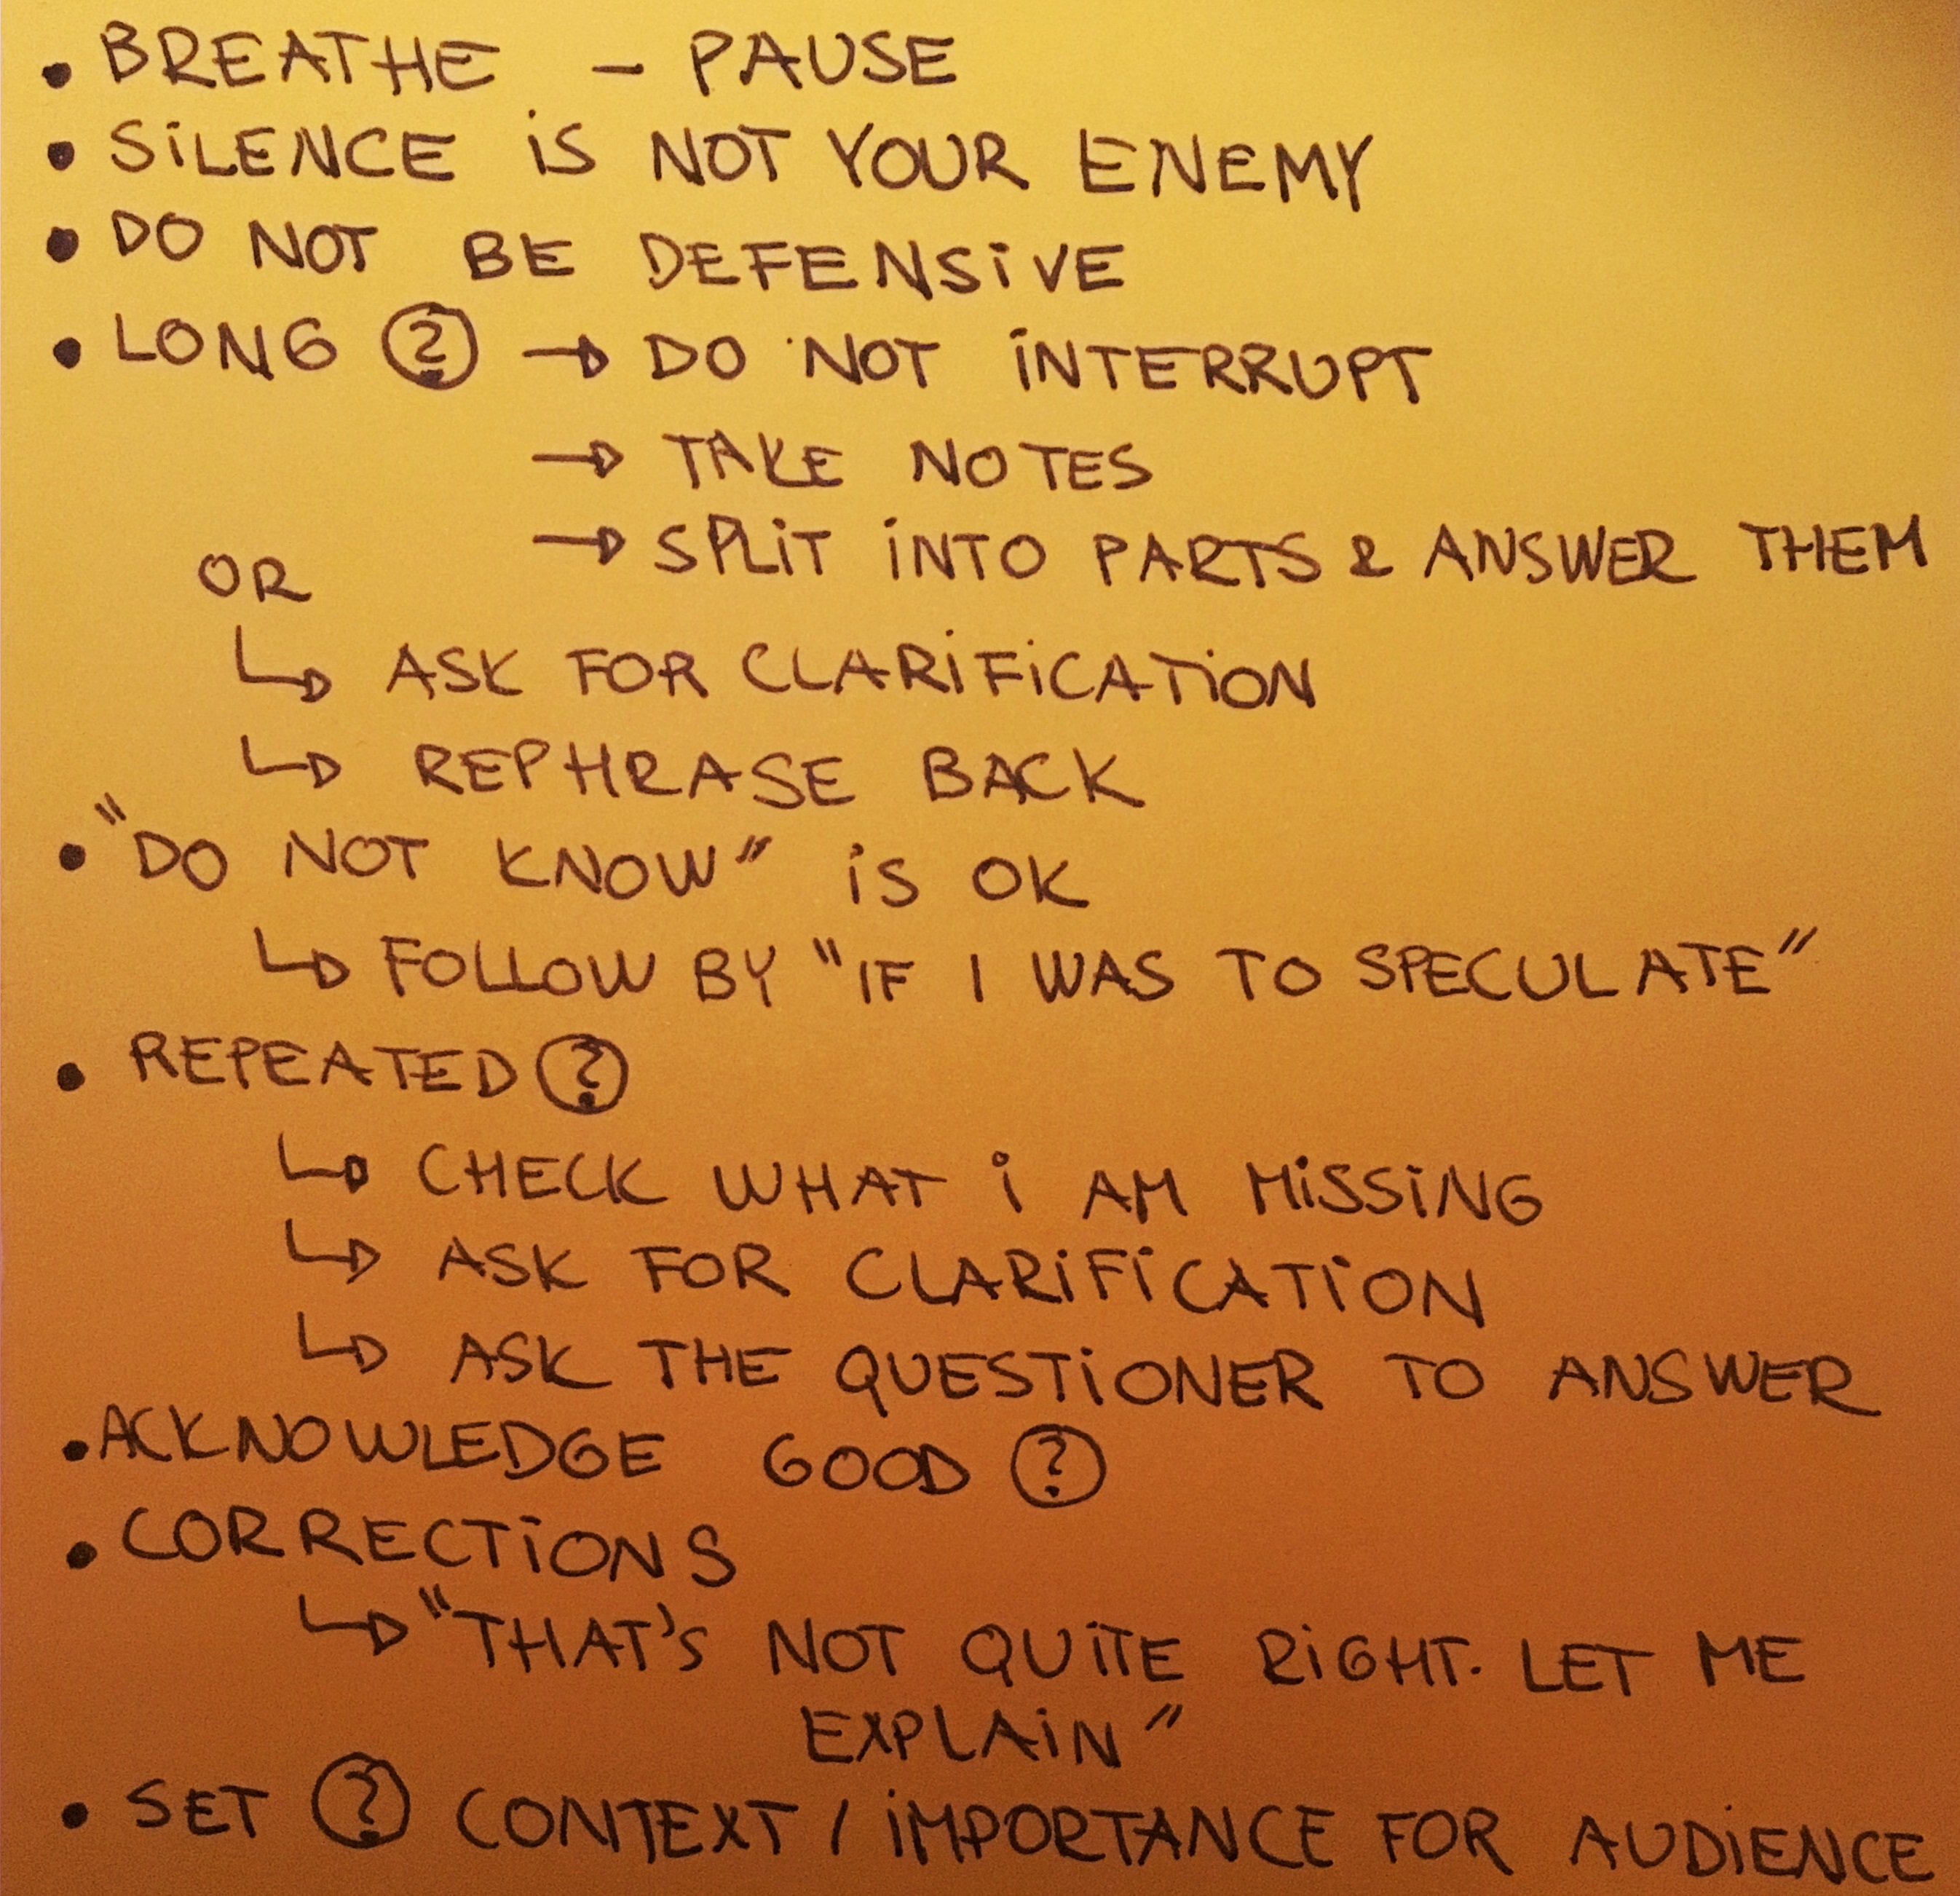 • BREATHE – PAUSE
• SILENCE IS NOT YOUR ENEMY
• DO NOT BE DEFENSIVE
• LONG ? → DO NOT INTERRUPT
→ TAKE NOTES
→ SPLIT INTO PARTS & ANSWER THEM
OR
↳ ASK FOR CLARIFICATION
↳ REPHRASE BACK
• "DO NOT KNOW" IS OK
↳ FOLLOW BY "IF I WAS TO SPECULATE"
• REPEATED ?
↳ CHECK WHAT I AM MISSING
↳ ASK FOR CLARIFICATION
↳ ASK THE QUESTIONER TO ANSWER
• ACKNOWLEDGE GOOD ?
• CORRECTIONS
↳ "THAT'S NOT QUITE RIGHT. LET ME
EXPLAIN"
• SET ? CONTEXT / IMPORTANCE FOR AUDIENCE